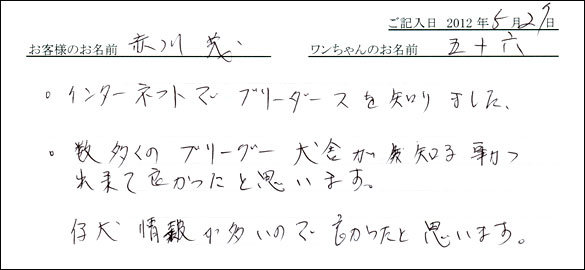 ご記入日 2012年5月27日
お客様のお名前 赤川 茂 ワンちゃんのお名前 五十六
。インターネットで ブリーダースを知りました、
。数多くの ブリーダー 犬舎が 知る事が
出来て良かったと思います。
仔犬 情報が多いので 良かったと 思います。